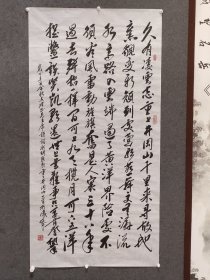 久有凌云志重上井冈山千里来寻故地
旧貌变新颜到处莺歌燕舞更有潺潺流
水高路入云端过了黄洋界险处不
须看风雷动旌旗奋是人寰三十八年
过去弹指一挥间可上九天揽月可下五洋
捉鳖谈笑凯歌还世上无难事只要肯登攀